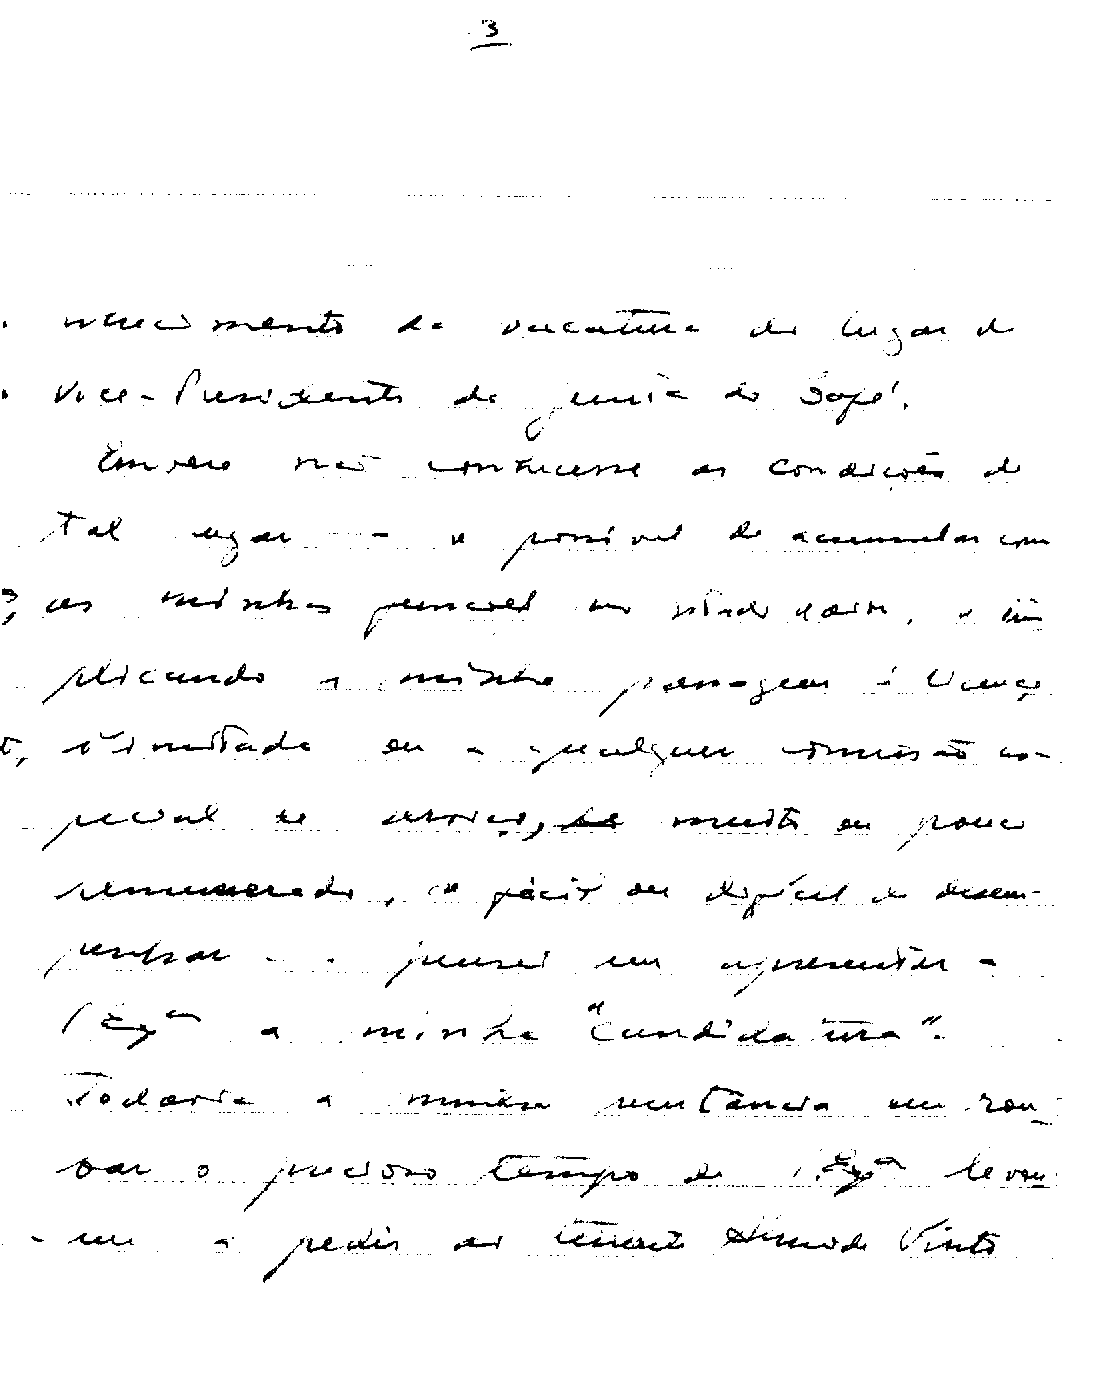 3
da vacatura do lugar de
Vice-Presidente da Junta do Café.
Embora não conhecesse as condições de
tal lugar - o possível de acumular com
as minhas no
plicando a minha passagem à licença
ilimitada ou a qualquer comissão es-
pecial de serviço, muito ou pouco
remunerado, fácil ou difícil de desem-
penhar - pensei em apresentar a
V. Exª a minha "candidatura".
Todavia a minha relutância em rou-
bar o precioso tempo de V. Exª levou-
me a pedir ao tenente Pinto